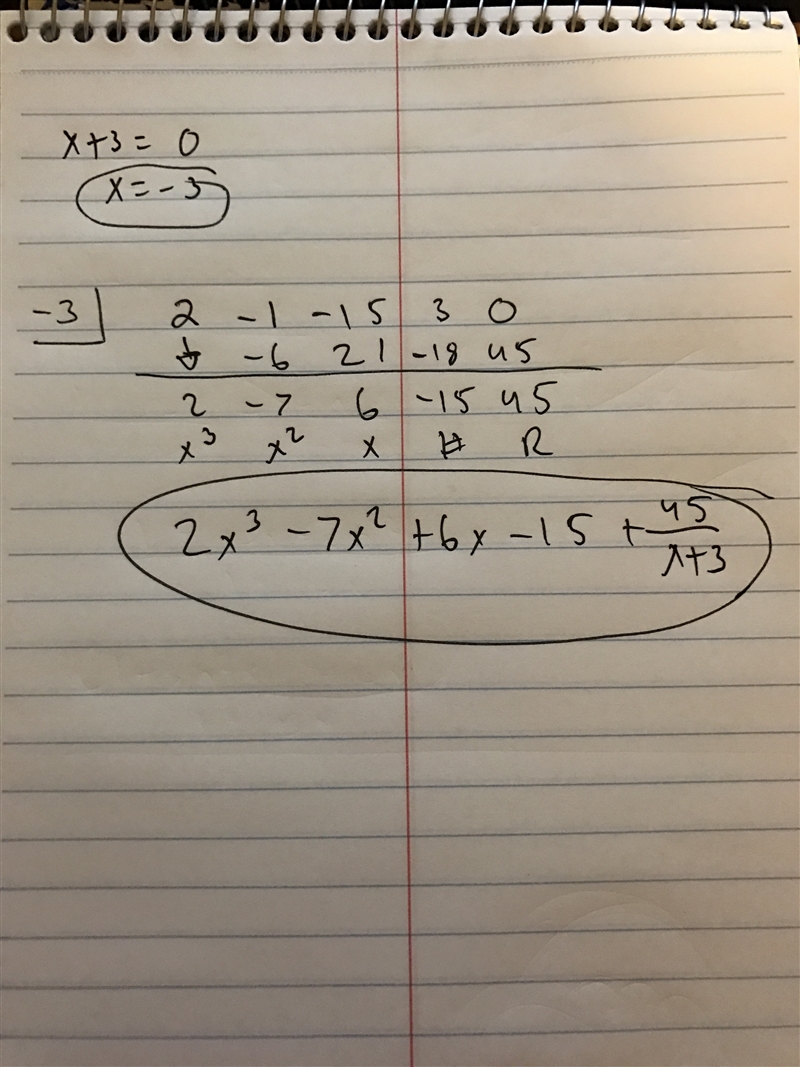 x+3 = 0
x = -3
-3 2 -1 -15 3 0
↓ -6 21 -18 45
2 -7 6 -15 45
x³ x² x # R
2x³ -7x² +6x -15 + 45/x+3